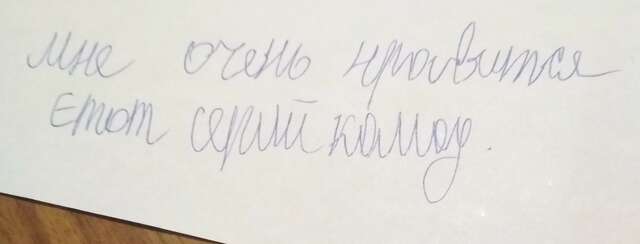 мне очень нравится
Етот серий комод.